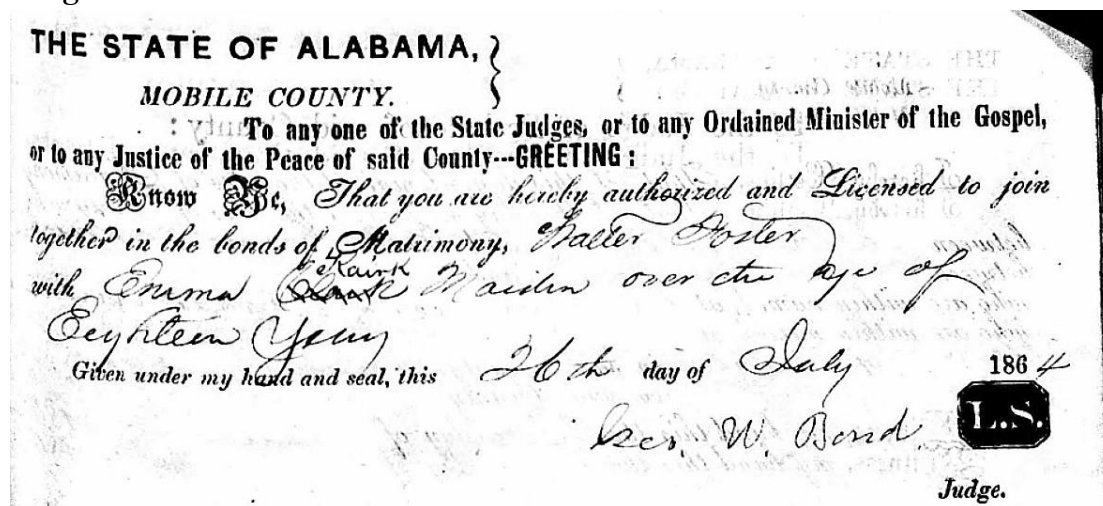 THE STATE OF ALABAMA,
MOBILE COUNTY.
To any one of the State Judges, or to any Ordained Minister of the Gospel,
or to any Justice of the Peace of said County---GREETING:
Know Ye, That you are hereby authorized and Licensed to join
together in the bonds of Matrimony, Walter Foster
with Emma Maiden over the age of
Eeighteen Years
Given under my hand and seal, this 26th day of July 1864
Geo. W. Bond. L.S.
Judge.